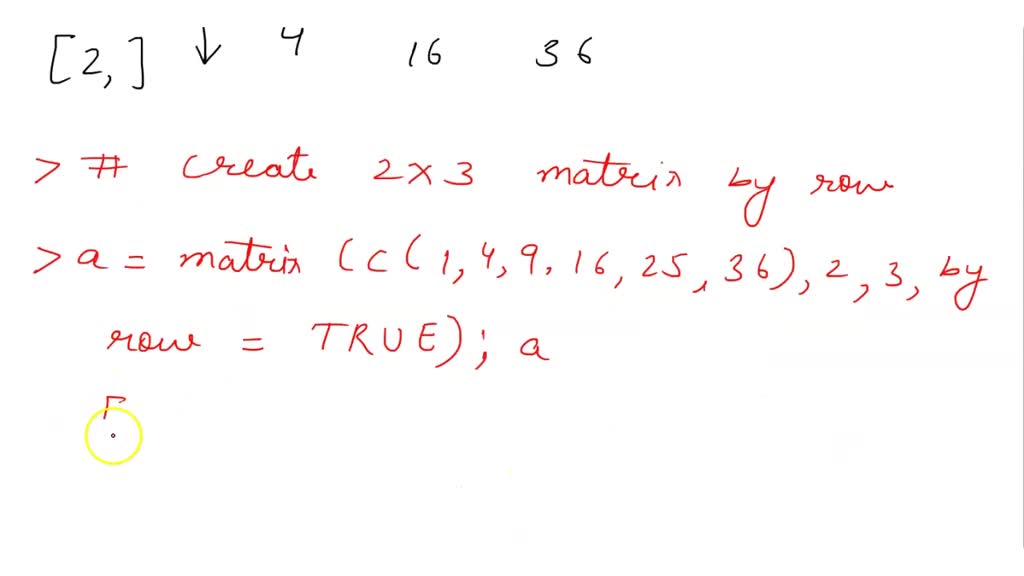 [2,] ↓ 4 16 36
> # create 2x3 matrix by row
> a = matrix (c(1,4,9,16,25,36),2,3, by
row = TRUE); a